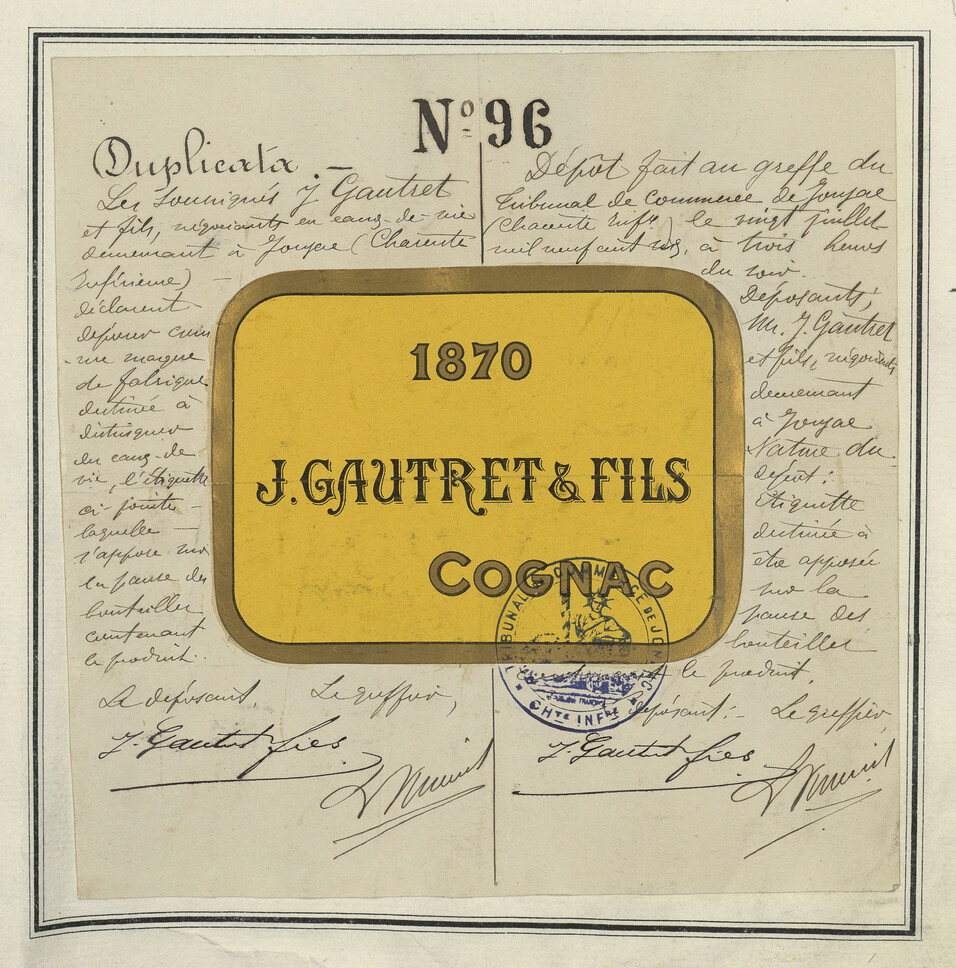 Nº 96
Duplicata. —
Les soussignés J. Gautret
et fils, négociants en eaux-de-vie
demeurant à Jonzac (Charente
Inférieure) —
déclarent
déposer comme
une marque
de fabrique
destinée à
distinguer
des eaux-de-
vie, l'étiquette
ci-jointe —
laquelle —
s'appose sur
la panse des
bouteilles
contenant
le produit.
Le déposant, Le greffier,
J. Gautret fils
Dépôt fait au greffe du
Tribunal de Commerce de Jonzac
(Charente Infre) le vingt juillet
mil neuf cent, à trois heures
du soir.
Déposants,
Mr. J. Gautret
et fils, négociants
demeurant
à Jonzac
Nature du
dépôt :
étiquette
destinée à
être apposée
sur la
panse des
bouteilles
le produit.
déposant :- Le greffier,
J. Gautret fils
1870
J. GAUTRET & FILS
COGNAC
TRIBUNAL DE COMMERCE DE JONZAC
CHTE INFRE